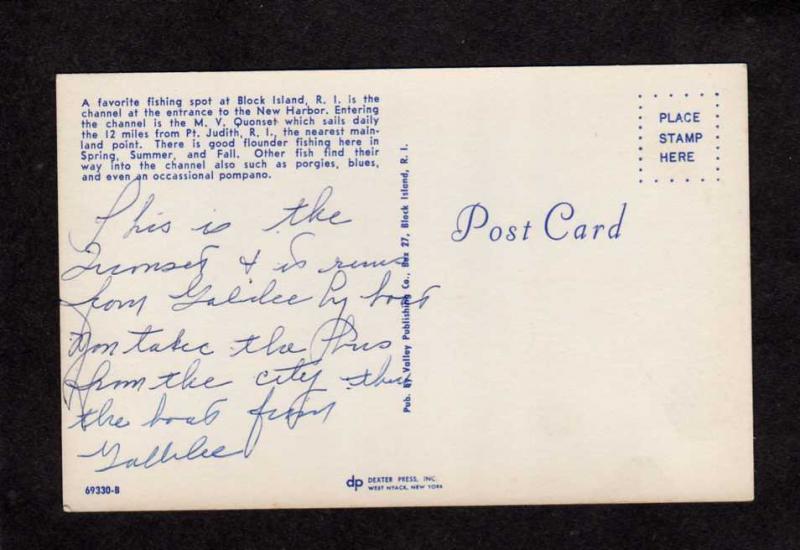 A favorite fishing spot at Block Island, R. I. is the
channel at the entrance to the New Harbor. Entering
the channel is the M. V. Quonset which sails daily
the 12 miles from Pt. Judith, R. I., the nearest main-
land point. There is good flounder fishing here in
Spring, Summer, and Fall. Other fish find their
way into the channel also such as porgies, blues,
and even an occassional pompano.
This is the
Quonset & is runs
from Galilee by boat
You take the Bus
from the city then
the boat from
Gallilee
69330-B
Pub. By Valley Publishing Co., Box 27, Block Island, R. I.
dp DEXTER PRESS, INC.
WEST NYACK, NEW YORK
PLACE
STAMP
HERE
Post Card